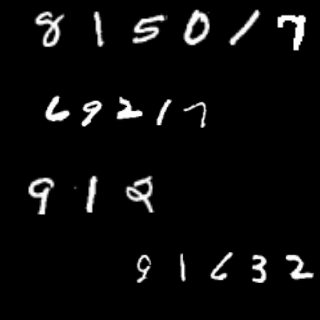 815017
69217
912
91632